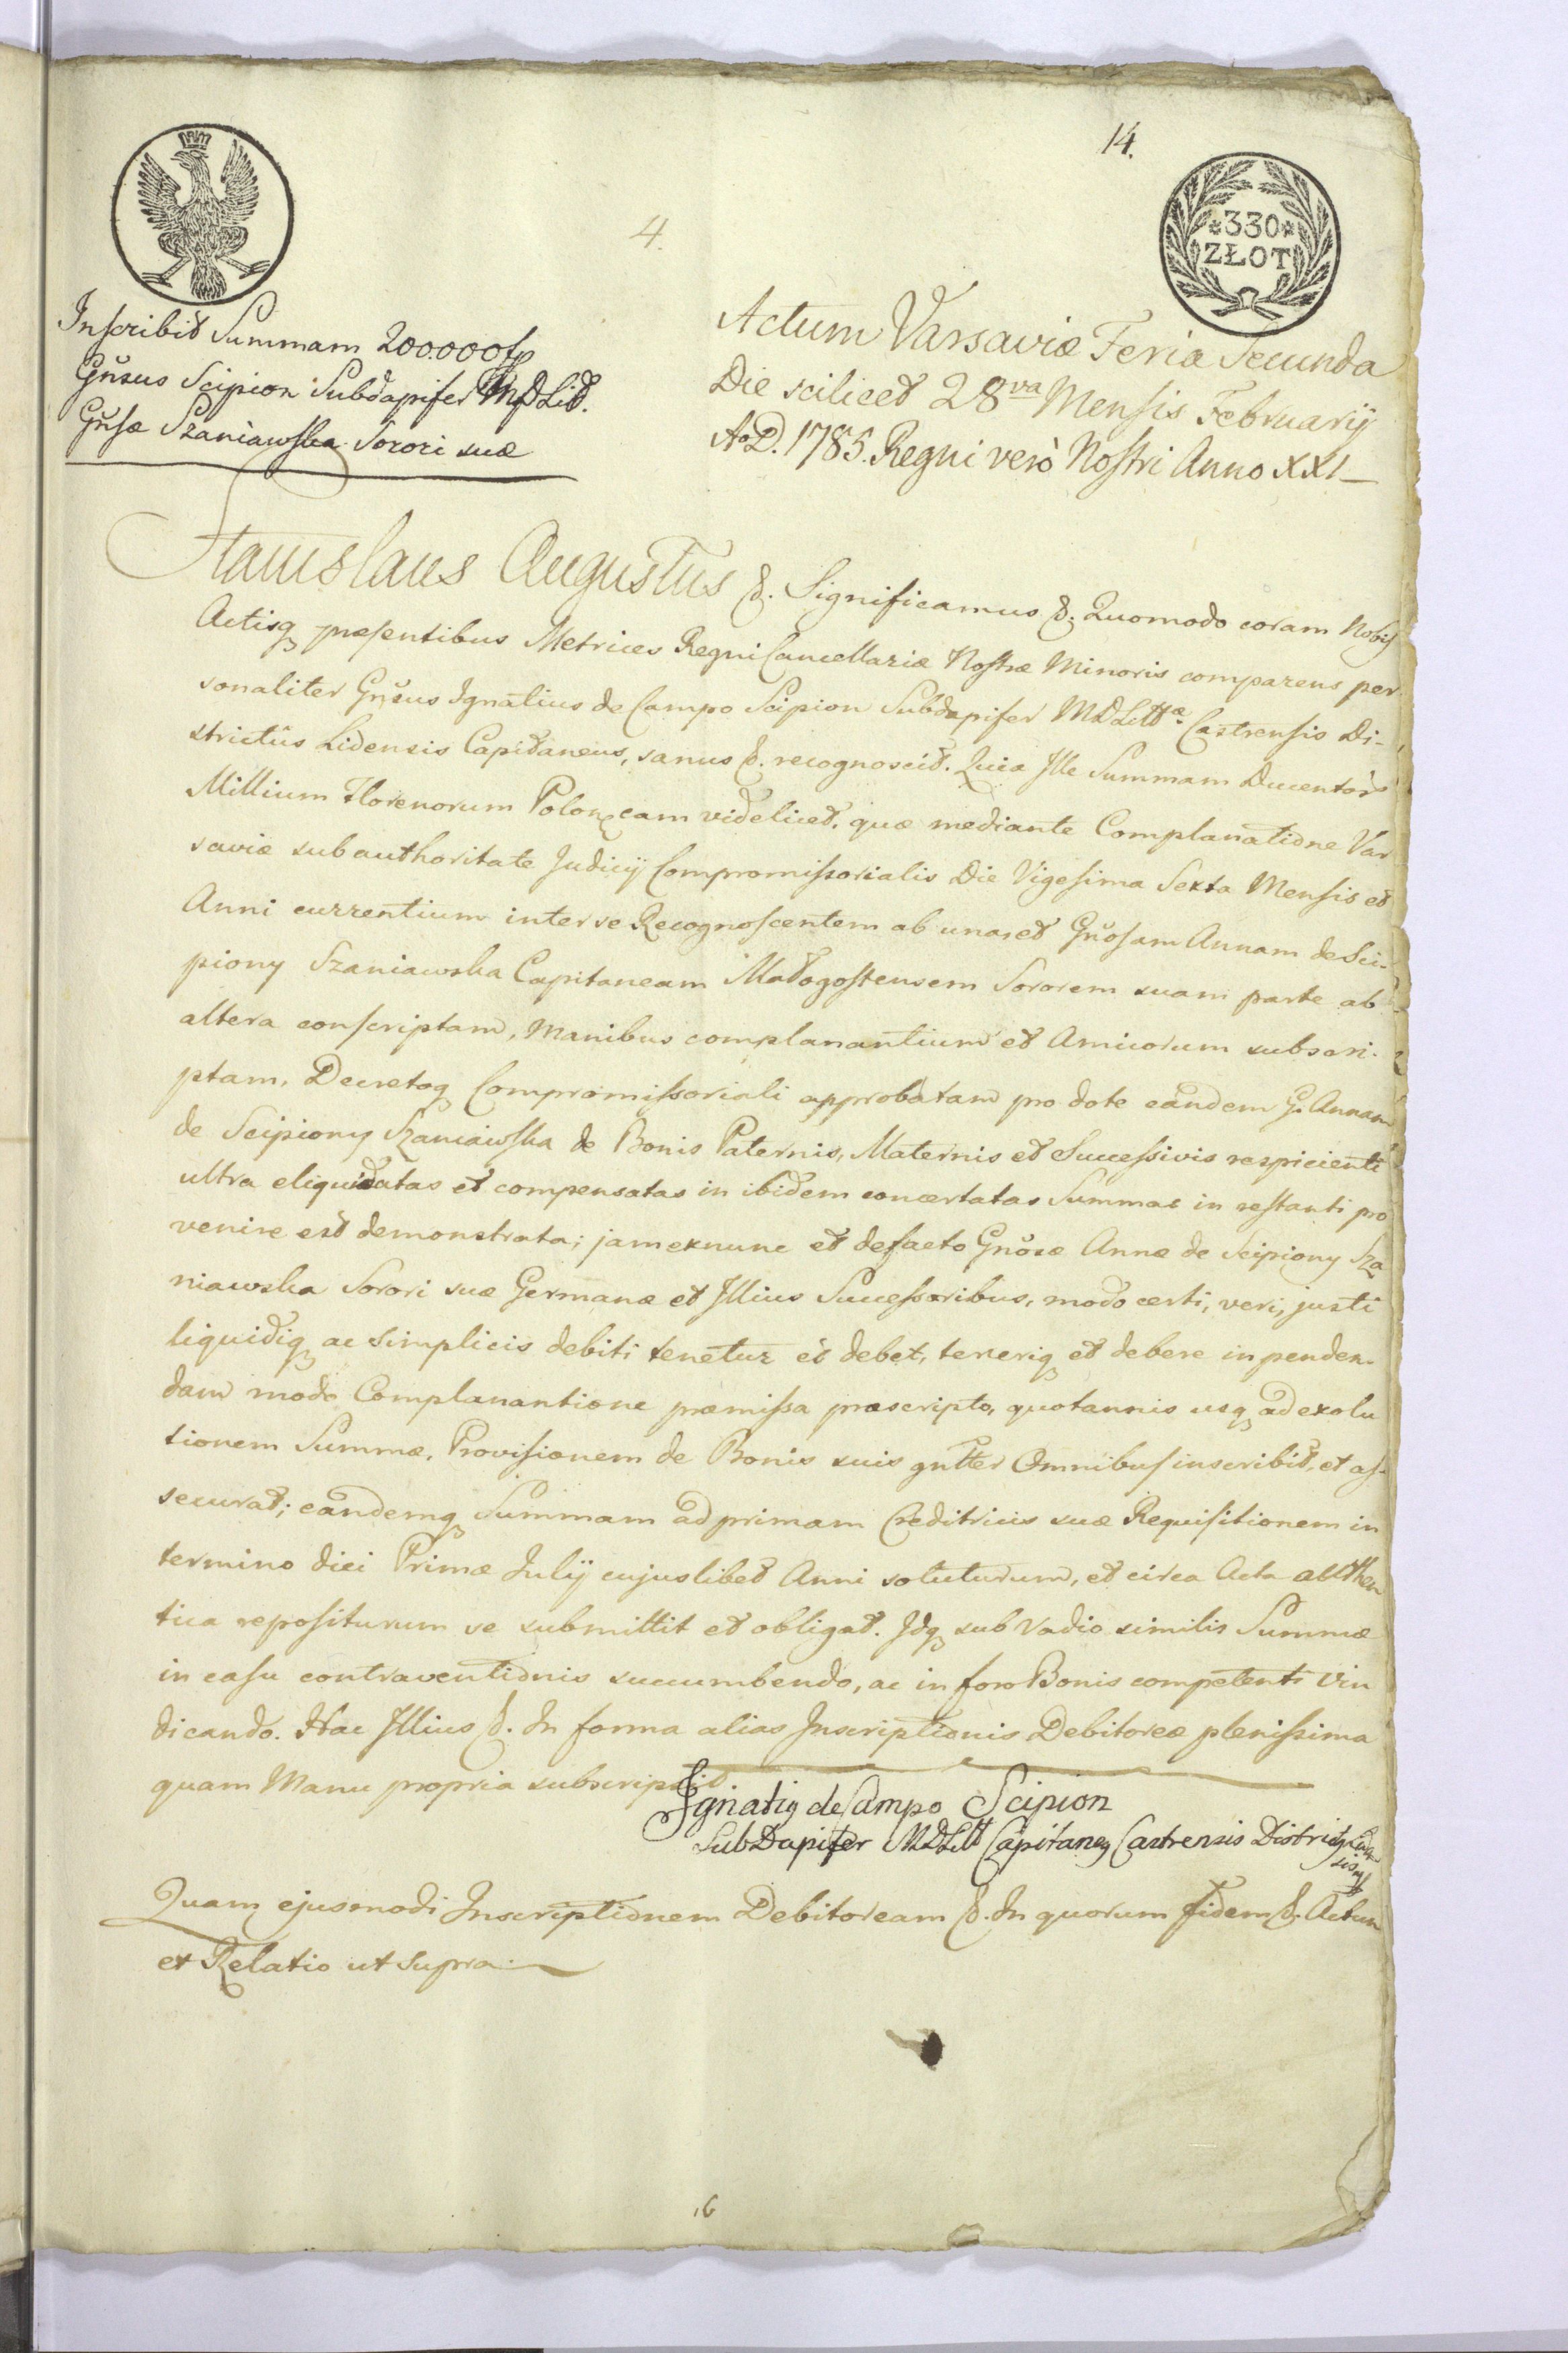 14.
4.
*330*
ZŁOT
Inscribit Summam 200000 fp
Gnsus Scipion Subdapifer MDLit.
Gnsæ Szaniawska Sorori suæ
Actum Varsaviæ Feria Secunda
Die scilicet 28va Mensis Februarij
Ao D. 1785. Regni verò Nostri Anno XXI
Stanislaus Augustus &. Significamus &. Quomodo coram Nobis
Actisq præsentibus Metrices Regni Cancellariæ Nostræ Minoris comparens per
sonaliter Gnsus Ignatius de Campo Scipion Subdapifer MDLittæ Castrensis Di-
strictûs Lidensis Capitaneus, sanus &. recognoscit. Quia Ille Summam Ducentor
Millium Florenorum Polon, eam videlicet, quæ mediante Complanatione Var
saviæ sub authoritate Judicij Compromissorialis Die Vigesima Sexta Mensis et
Anni currentium inter se Recognoscentem ab una, et Gnosam Annam de Sci-
piony Szaniawska Capitaneam Małogostensem Sororem suam parte ab
altera conscriptam, Manibus complanantium et Amicorum subscri-
ptam, Decretoq Compromissoriali approbatam pro dote eandem G. Annam
de Scipiony Szaniawska de Bonis Paternis, Maternis et Successivis respicienti
ultra eliquidatas et compensatas in ibidem concertatas Summas in restanti pro
venire est demonstrata; jam exnunc et defacto Gnosæ Annæ de Scipiony Sza
niawska Sorori suæ Germanæ et Illius Successoribus, modo certi, veri, justi
liquidiq ac simplicis debiti tenetur et debet, tenereriq et debere in penden-
dam modo Complanantione præmissa præscripto, quotannis usq ad exolu
tionem Summæ, Provisionem de Bonis suis gntter Omnibus inscribit, et as-
securat; eandemq Summam ad primam Creditricis suæ Requisitionem in
termino diei Primæ Julij cujuslibet Anni soluturum, et circa Acta authen
tica repositurum se submittit et obligat. Idq sub vadio similis Summæ
in casu contraventionis succumbendo, ac in foro Bonis competenti vin
dicando. Hac Illius &. In forma alias Inscriptionis Debitoreæ plenissima
quam Manu propria subscripsit
Ignatiq de Campo Scipion
SubDapifer MDLitt Capitaneq Castrensis Districtq Liden
sis
Quam ejusmodi Inscriptionem Debitoream &. In quorum fidem &. Actum
et Relatio ut supra.